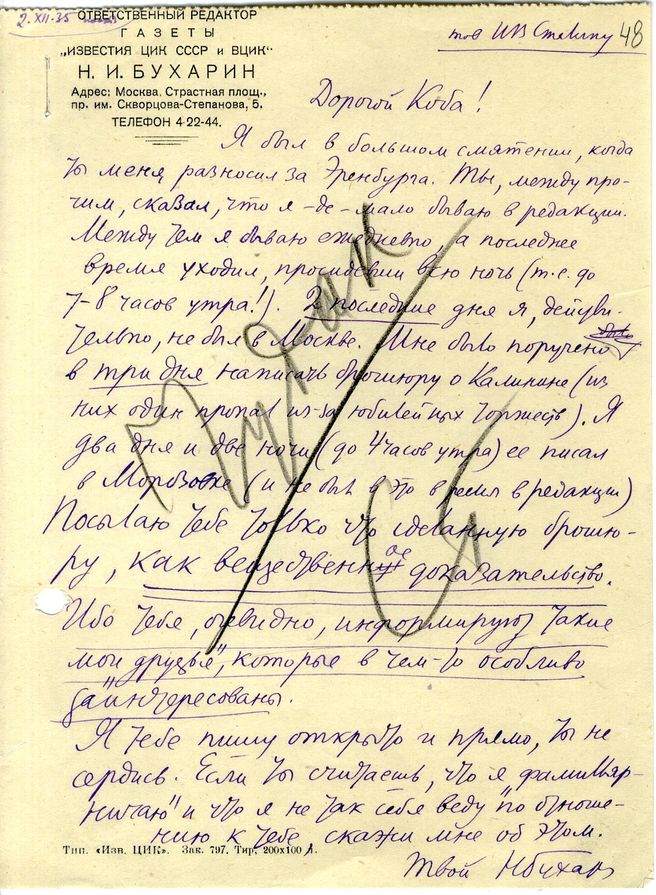 2.XII.35
ОТВЕТСТВЕННЫЙ РЕДАКТОР
ГАЗЕТЫ
„ИЗВЕСТИЯ ЦИК СССР и ВЦИК"
Н. И. БУХАРИН
Адрес: Москва, Страстная площ.,
пр. им. Скворцова-Степанова, 5.
ТЕЛЕФОН 4-22-44.
тов ИВ Сталину
48
Дорогой Коба!
Я был в большом смятении, когда
ты меня разносил за Эренбурга. Ты, между про-
чим, сказал, что я-де-мало бываю в редакции.
Между тем я бываю ежедневно, а последнее
время уходил, просидевши всю ночь (т.е. до
7-8 часов утра!). 2 последние дня я, действи-
тельно, не был в Москве. Мне было поручено
в три дня написать брошюру о Калинине (из
них один пропал из-за юбилейных торжеств). Я
два дня и две ночи (до 4 часов утра) ее писал
в Морозовке (и не был в это время в редакции)
Посылаю тебе только что сделанную брошю-
ру, как вещественное доказательство.
Ибо тебя, очевидно, информируют такие
мои „друзья", которые в чем-то особливо
заинтересованы.
Я тебе пишу открыто и прямо, ты не
сердись. Если ты считаешь, что я „фамильяр-
ничаю" и что я не так себя веду по отноше-
нию к тебе скажи мне об этом.
Твой НБухарин
Тип. «Изв. ЦИК». Зак. 797. Тир. 200x100 л.
Чудак